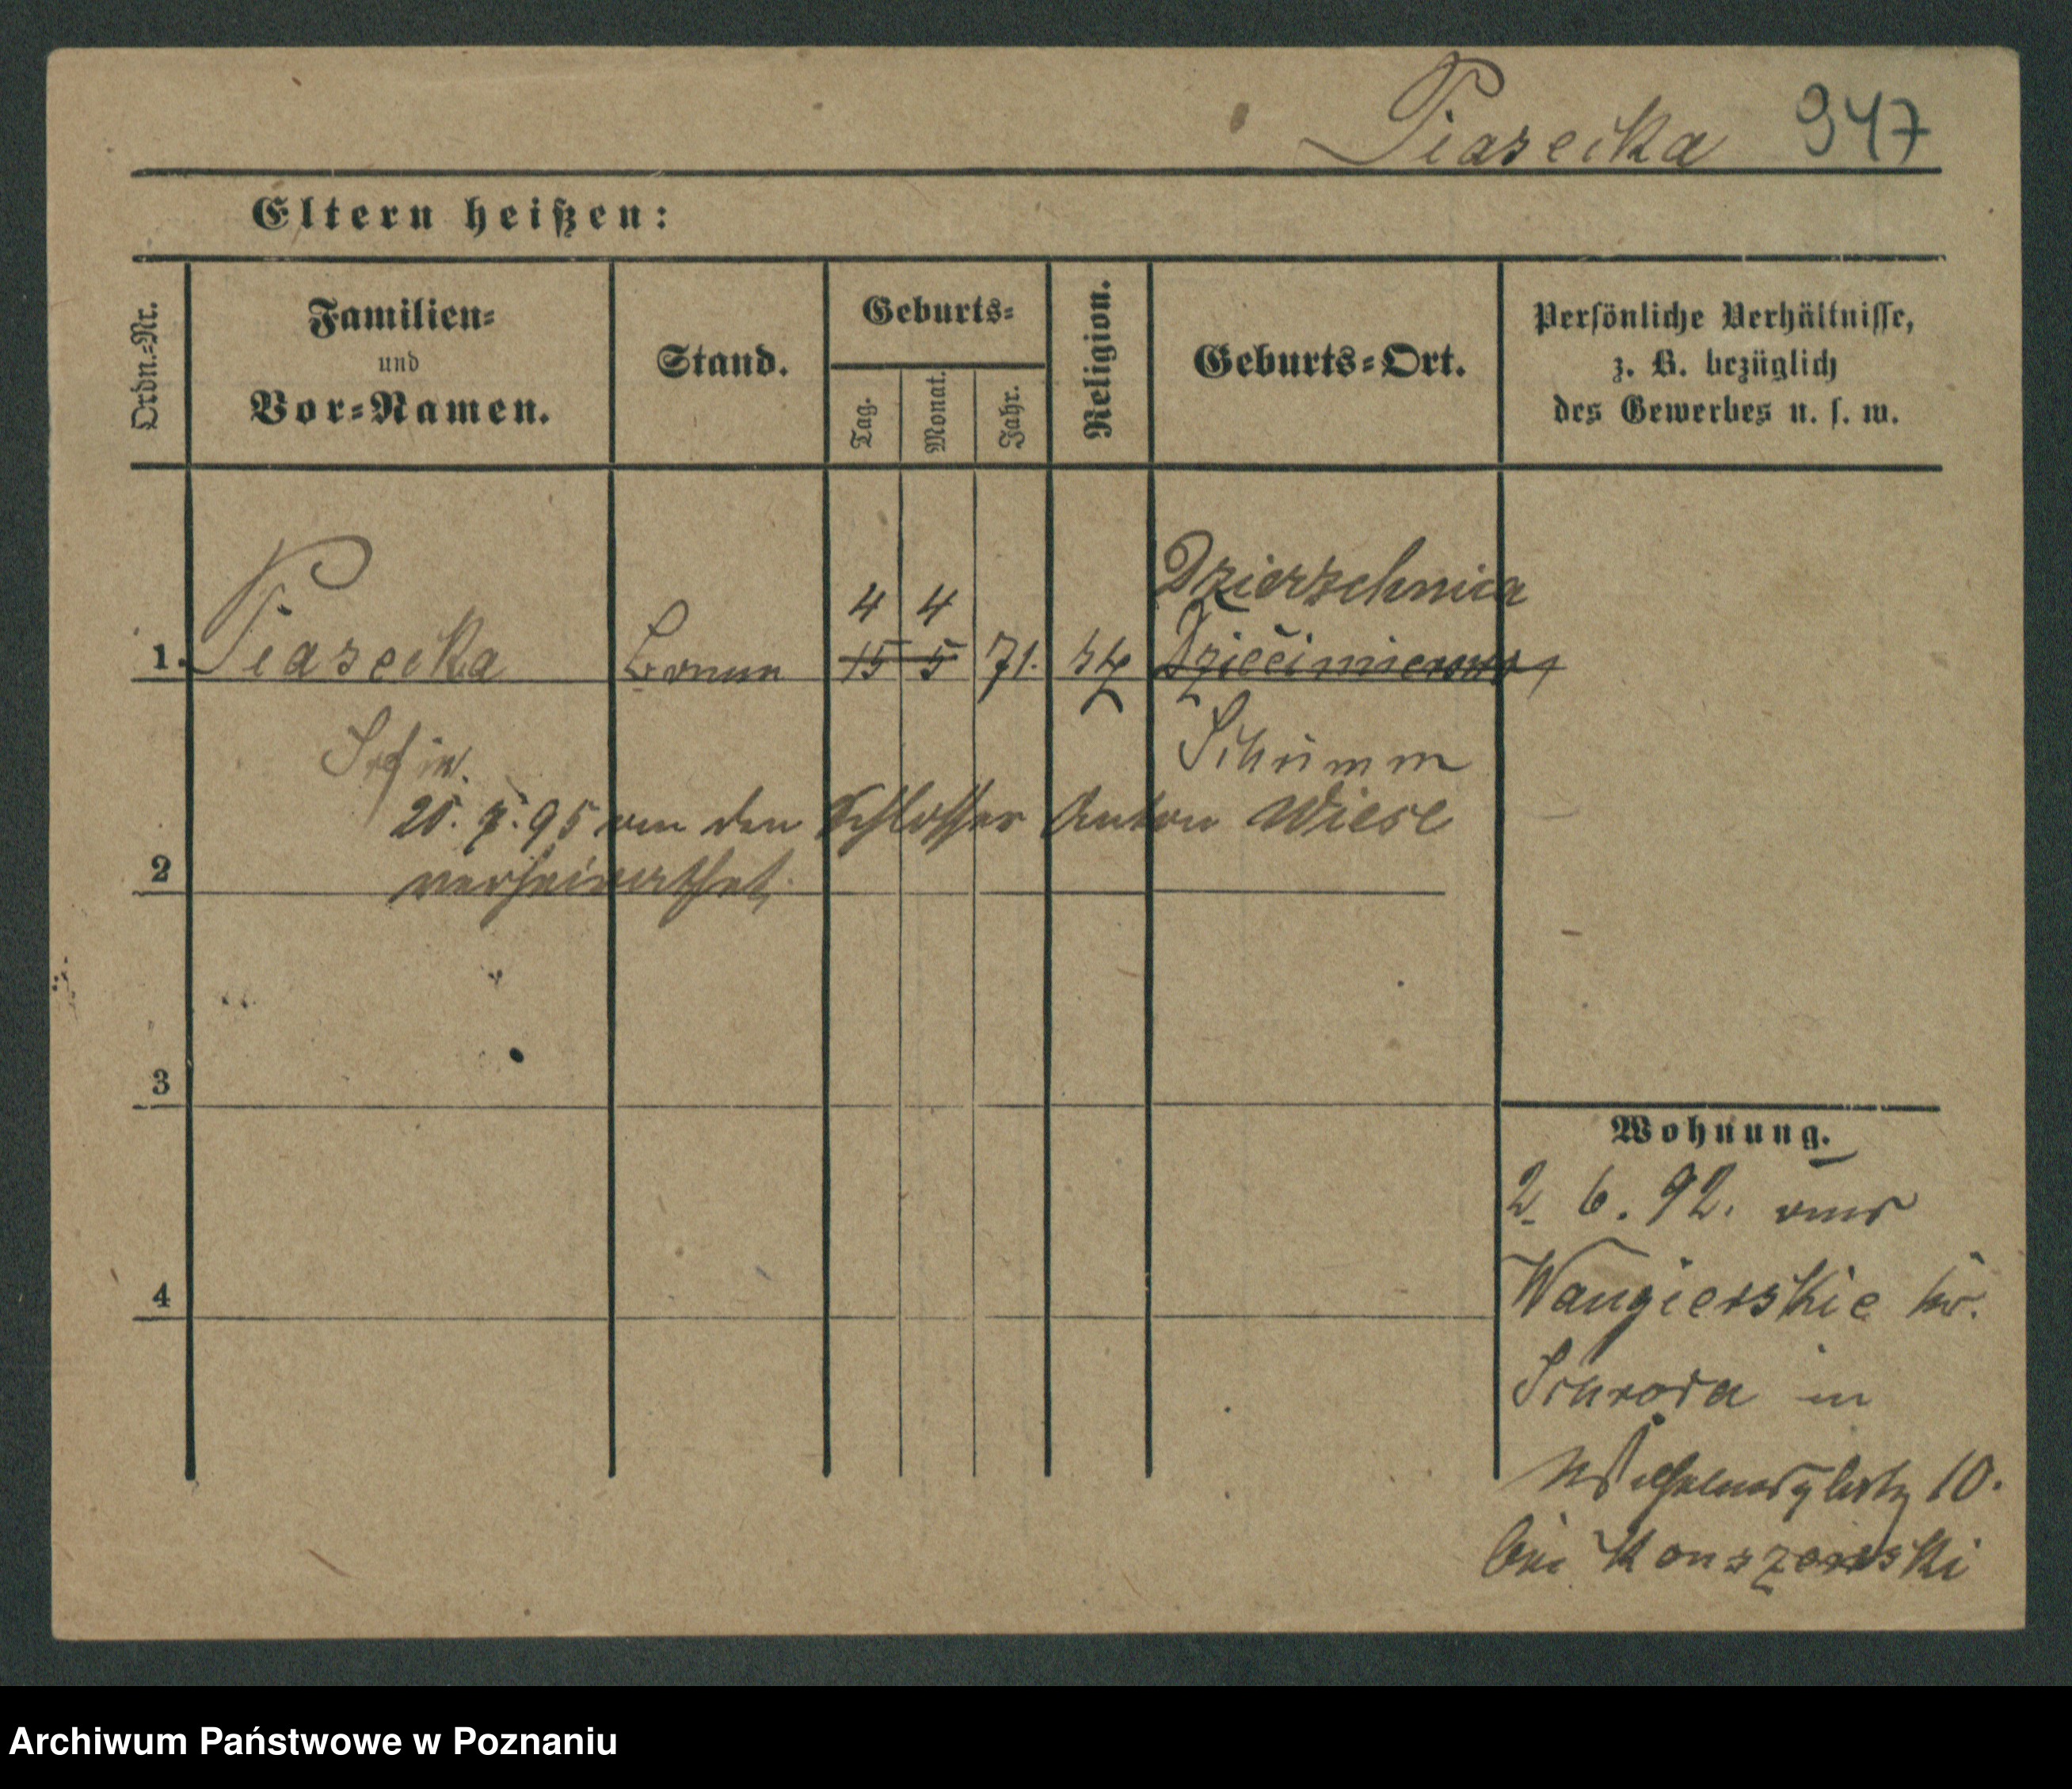 Piasecka 947
Eltern heißen:
Ordn.-Nr.
Familien-
und
Vor-Namen.
Stand.
Geburts-
Tag.
Monat.
Jahr.
Religion.
Geburts-Ort.
Persönliche Verhältnisse,
z. B. bezüglich
des Gewerbes u. s. w.
4 4 Dzierzchnica
1. Piasecka 15 5 71. Dziećmierowo
Schrimm
20. 7. 95 den Schlosser Anton Wiese
2 verheirathet.
3
4
Wohnung.
2. 6. 92. aus
Wangierskie Kr.
Schroda in
Wilhelmsplatz 10.
bei
Archiwum Państwowe w Poznaniu